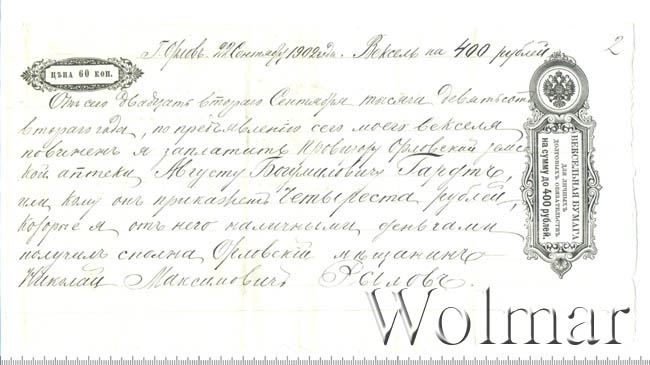 Г. Орловъ. 22 Сентября 1902 года. Вексель на 400 рублей
2
ЦѢНА 60 КОП.
Отъ сего двадцать втораго Сентября тысяча девятьсотъ
втораго года, по предъявленію сего моего векселя
повиненъ я заплатить провизору Орловской земс
кой аптеки, Августу Богумиловичу Гардтъ,
или кому онъ прикажетъ Четыреста рублей,
которые я отъ него наличными деньгами
получилъ сполна Орловскій мѣщанинъ
Николай Максимовичъ
ВЕКСЕЛЬНАЯ БУМАГА
ДЛЯ ЛИЧНЫХЪ
ДОЛГОВЫХЪ ОБЯЗАТЕЛЬСТВЪ
на сумму до 400 рублей.
Wolmar